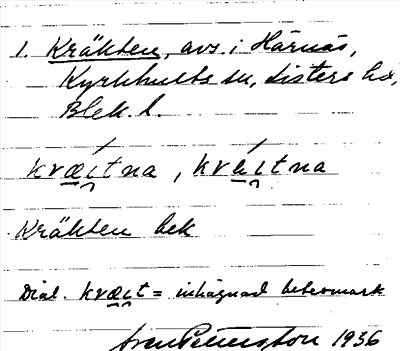 1. Kräkten, avs. i Härnäs,
Kyrkhults sn, Listers hd,
Blek. l.
kvæi̯tna, kvai̯tna
Kräkten bek
Dial. kvæi̯t = inhägnad betesmark
Sven Pettersson 1936